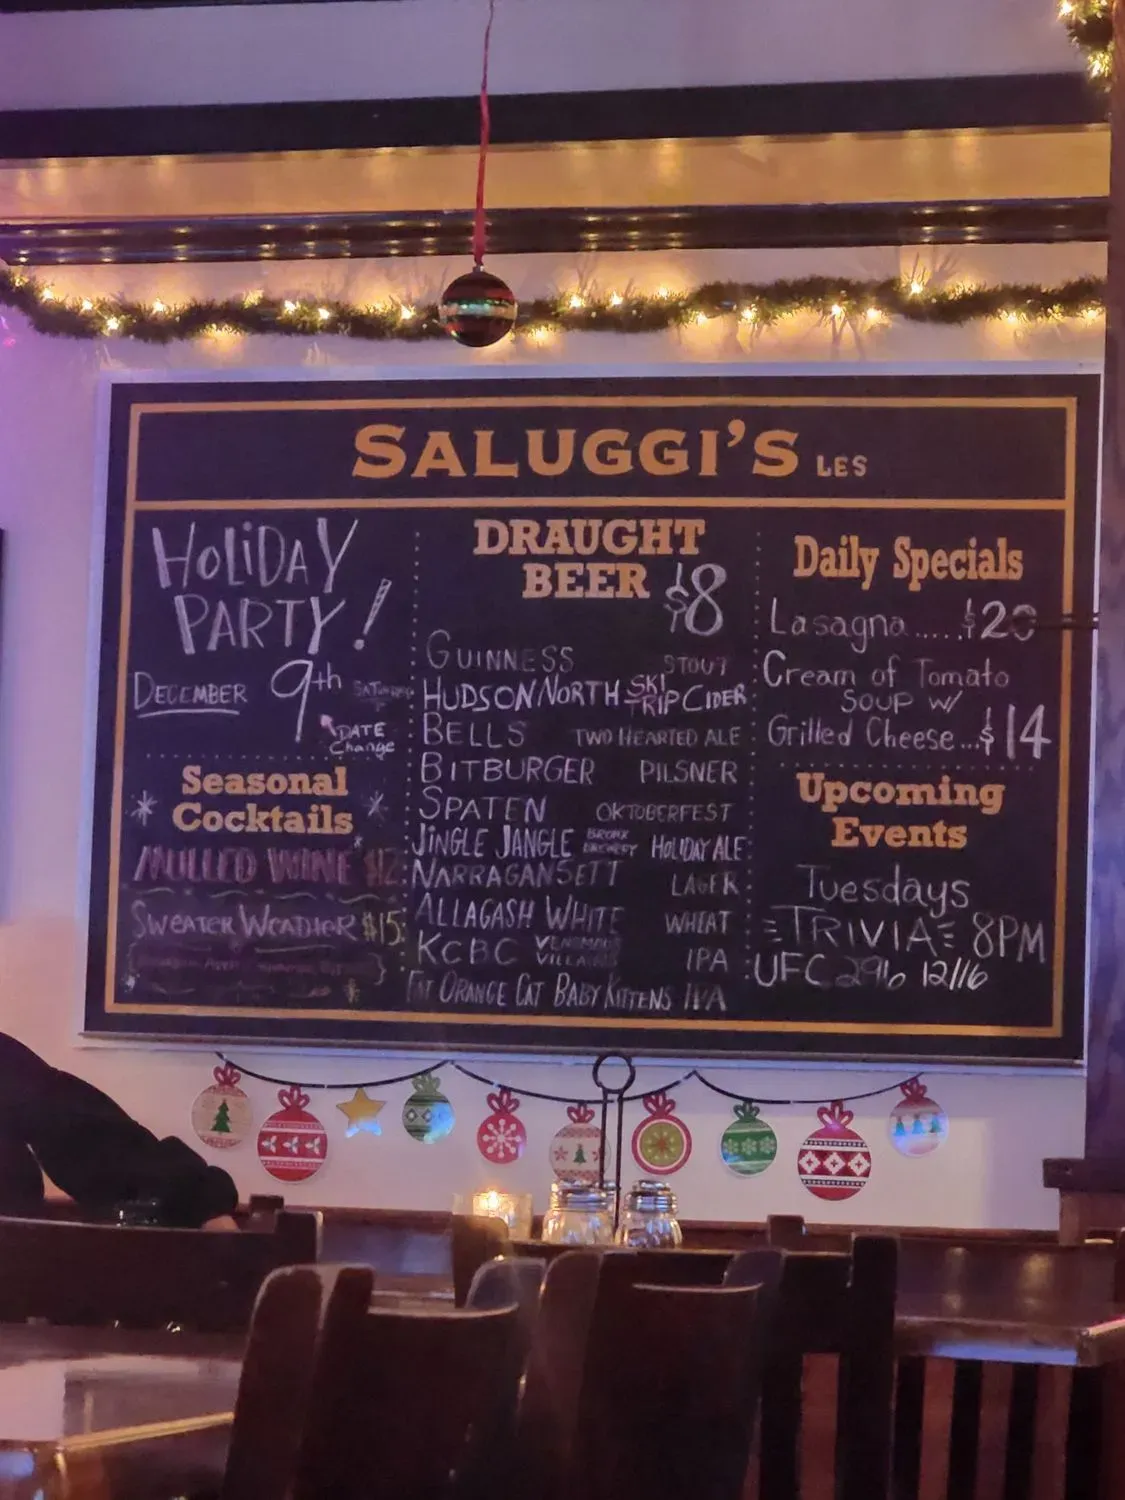 SALUGGI'S LES
HOLIDAY
PARTY!
DECEMBER 9th SATURDAY
DATE
Change
Seasonal
Cocktails
MULLED WINE
SWEATER WEATHER $15
DRAUGHT
BEER $8
GUINNESS STOUT
HUDSON NORTH SKI TRIP CIDER
BELLS TWO HEARTED ALE
BITBURGER PILSNER
SPATEN OKTOBERFEST
JINGLE JANGLE BRONX BREWERY HOLIDAY ALE
NARRAGANSETT LAGER
ALLAGASH WHITE WHEAT
KCBC VENOMOUS VILLAINS IPA
FAT ORANGE CAT BABY KITTENS IPA
Daily Specials
Lasagna.....$20
Cream of Tomato
SOUP W/
Grilled Cheese...$14
Upcoming
Events
Tuesdays
TRIVIA 8PM
UFC 296 12/16